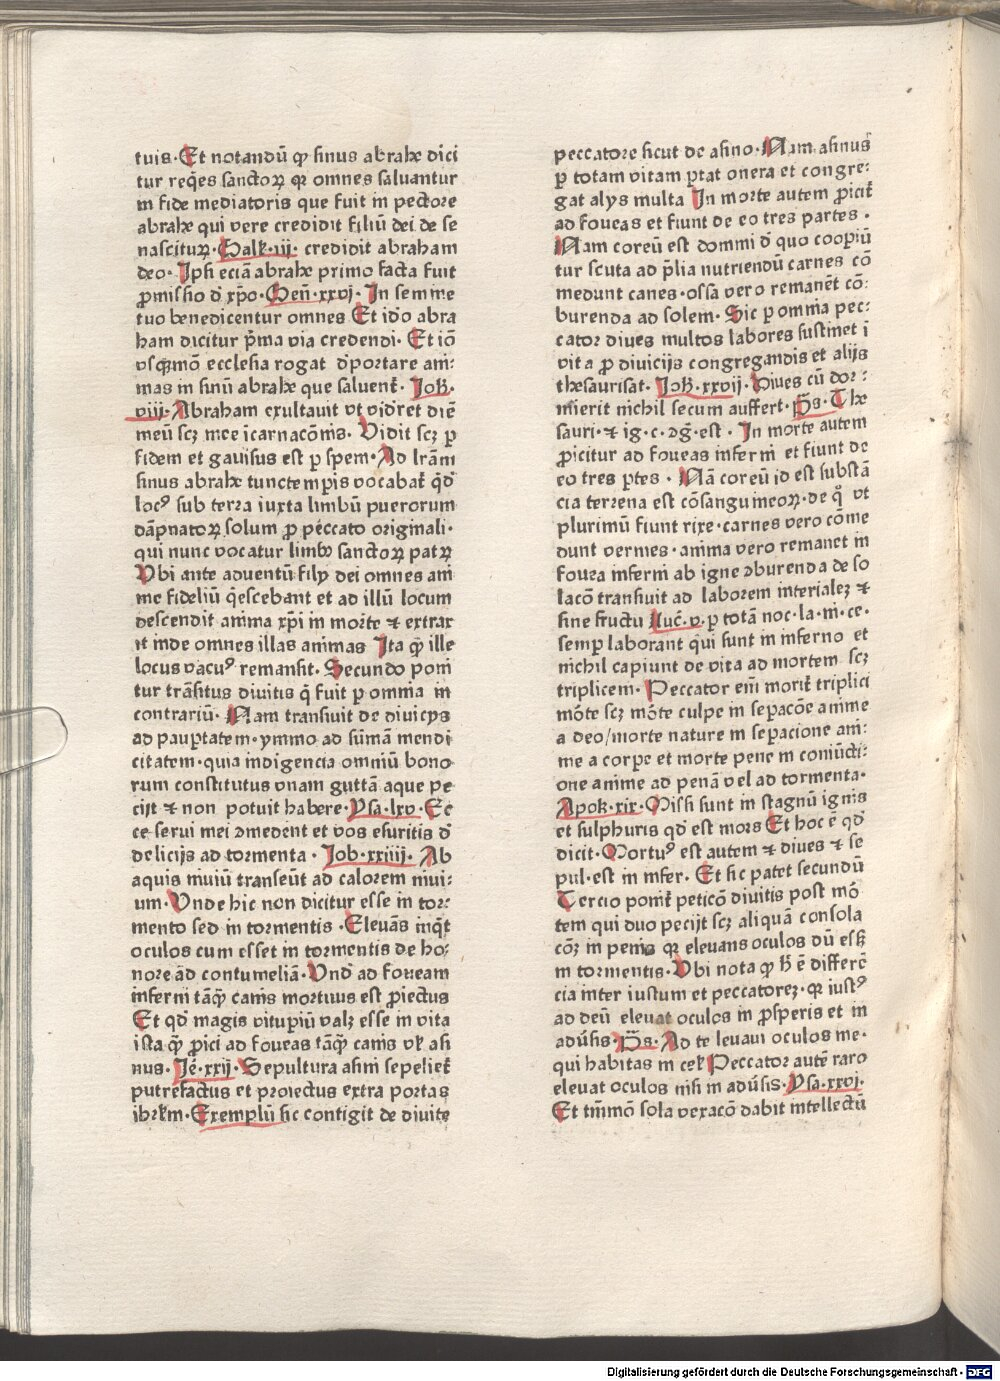 tuis. Et notandū ꝙ sinus abrahe dici
tur reqͥes sanctoꝝ qꝛ omnes saluantur
in fide mediatoris que fuit in pectore
abrahe qui vere credidit filiū dei de se
nascituꝝ. Galꝭ. iij. credidit abraham
deo. Ipsi eciā abrahe primo facta fuit
ꝓmissio d̄ xp̄o. Gen̄. xxvj. In semine
tuo benedicentur omnes Et ido abra
ham dicitur pͥma via credendi. Et iō
vsqꝫmō ecclesia rogat d̄portare ani:
mas in sinū abrahe que saluent᷑. Joh̄.
viij. Abraham exultauit vt vid̄ret diē
meū scꝫ mee īcarnacōnis. Vidit scꝫ ꝑ
fidem et gauisus est ꝑ spem. Ad lr̄am
sinus abrahe tunctempis vocabat᷑ qͥd̄
locꝰ sub terra iuxta limbū puerorum
dāpnatoꝝ solum ꝓ peccato originali.
qui nunc vocatur limbo sanctoꝝ patꝝ
Vbi ante aduentū filij dei omnes ani
me fideliū qͥescebant et ad illū locum
descendit anima xp̄i in morte ⁊ extrax
it inde omnes illas animas Ita ꝙ ille
locus vacuꝰ remansit. Secundo poni
tur trāsitus diuitis qͥ fuit ꝑ omnia in
contrariū. Nam transiuit de diuicijs
ad pauꝑtatem. ymmo ad sūmā mendi
citatem. quia indigencia omniū bono
rum constitutus vnam guttā aque pe
cijt ⁊ non potuit habere. Ysa. lxv. Ec
ce serui mei ꝯmedent et vos esuritis d̄
delicijs ad tormenta. Job. xxiiij. Ab
aquis niuiū transeūt ad calorem niui:
um. Vnde hic non dicitur esse in tor:
mento sed in tormentis. Eleuās inqͥt
oculos cum esset in tormentis de ho:
nore ad contumeliā. Vnd̄ ad foueam
inferni tāqꝫ canis mortuus est ꝓiectus
Et qd̄ magis vituꝑiū valꝫ esse in vita
ista qꝫ ꝓici ad foueas tāqꝫ canis vl̄ asi
nus. Je͞. xxij. Sepultura asini sepeliet᷑
putrefactus et proiectus extra portas
ihrl̄m. Exemplū sic contigit de diuite
peccatore sicut de asino. Nam asinus
ꝑ totam vitam ꝑtat onera et congre:
gat alys multa In morte autem ꝓicit᷑
ad foueas et fiunt de eo tres partes.
Nam coreū est domini d̄ quo cooꝑiū
tur scuta ad p̄lia nutriendū carnes cō
medunt canes. ossa vero remanēt cō:
burenda ad solem. Sic ꝑ omnia pec:
cator diues multos labores sustinet ī
vita ꝓ diuicijs congregandis et alijs
thesaurisat. Job̄. xxvij. Diues cū dor:
mierit nichil secum auffert. ps̄. The
sauri. ⁊ ig. c. ꝯḡ. est. In morte autem
ꝓicitur ad foueas inferni et fiunt de
eo tres ꝑtes. Nā coreū id est substā
cia terrena est cōsanguineoꝝ. de qͦ vt
plurimū fiunt rixe. carnes vero cōme
dunt vermes. anima vero remanet in
fouea inferni ab igne ꝯburenda de so
lacō transiuit ad laborem interialeꝫ ⁊
sine fructu Luc̄. v. ꝑ totā noc. la. ni. ce.
semꝑ laborant qui sunt in inferno et
nichil capiunt de vita ad mortem scꝫ
triplicem. Peccator eni͞ morit᷑ triplici
mōte scꝫ mōte culpe in seꝑacōe anime
a deo/morte nature in seꝑacione ani:
me a corpe et morte pene in coniūcti:
one anime ad penā vel ad tormenta.
Apok̄. xix. Missi sunt in stagnū ignis
et sulphuris qd̄ est mors Et hoc ē qd̄
dicit. Mortuꝰ est autem ⁊ diues ⁊ se
pul. est in infer. Et sic patet secundū
Tercio ponit᷑ peticō diuitis post mō
tem qui duo pecijt scꝫ aliquā consola
cōꝫ in penis qꝛ eleuans oculos dū esꝫ
in tormentis. Vbi nota ꝙ h̄ ē differē
cia inter iustum et peccatoreꝫ. qꝛ iustꝰ
ad deū eleuat oculos in ꝓsperis et in
adūsis. Ps̄. Ad te leuaui oculos me.
qui habitas in cel̄ Peccator autē raro
eleuat oculos nisi in adūsis. Ysa. xxvj.
Et tm̄mō sola vexacō dabit intellectū
Digitalisierung gefördert durch die Deutsche Forschungsgemeinschaft - DFG